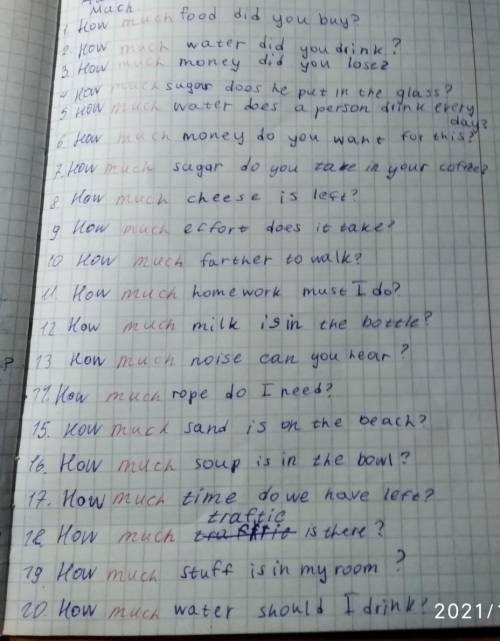 Much.
1. How much food did you buy?
2. How much water did you drink?
3. How much money did you lose?
4. How much sugar does he put in the glass?
5. How much water does a person drink every
day?
6. How much money do you want for this?
7. How much sugar do you take in your coffee?
8 How much cheese is left?
9 How much effort does it take?
10 How much farther to walk?
11. How much homework must I do?
12 How much milk is in the bottle?
13 How much noise can you hear?
14. How much rope do I need?
15. How much sand is on the beach?
16. How much soup is in the bowl?
17. How much time do we have left?
traffic
18. How much traffic is there?
19. How much stuff is in my room?
20. How much water should I drink?
2021/1